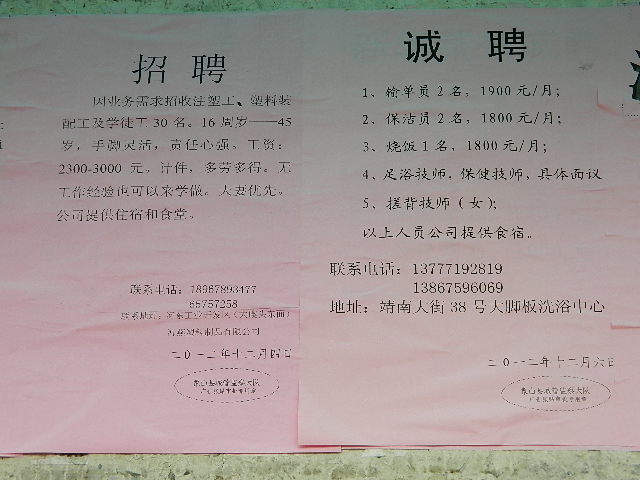 招聘
因业务需求招收注塑工、塑料装
配工及学徒工30名。16周岁——45
岁，手脚灵活，责任心强。工资：
2300-3000元，计件，多劳多得。无
工作经验也可以来学做。夫妻优先。
公司提供住宿和食堂。
联系电话：18967893477
65757258
联系地址：河东工业开发区（大碶头东面）
塑料制品有限公司
二0一二年十二月四日
象山县城管监察大队
诚聘
1、输单员2名，1900元/月；
2、保洁员2名，1800元/月；
3、烧饭1名，1800元/月；
4、足浴技师，保健技师，具体面议
5、搓背技师（女）；
以上人员公司提供食宿。
联系电话：13777192819
13867596069
地址：靖南大街38号大脚板洗浴中心
二0一二年十二月六日
象山县城管监察大队